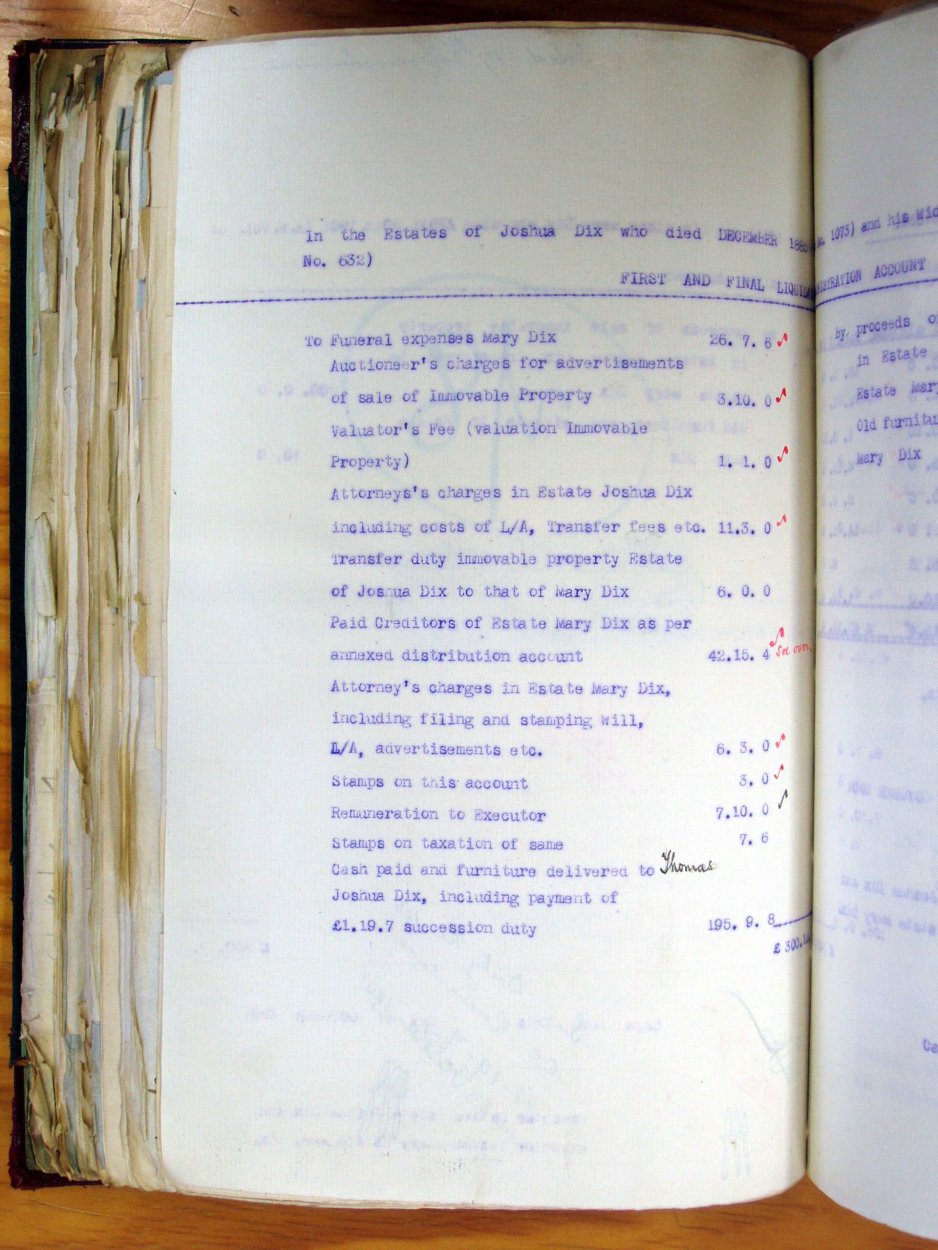 In the Estates of Joshua Dix who died DECEMBER 1886
No. 632)
FIRST AND FINAL LIQUIDA
To Funeral expenses Mary Dix 26. 7. 6
Auctioneer's charges for advertisements
of sale of Immovable Property 3.10. 0
Valuator's Fee (valuation Immovable
Property) 1. 1. 0
Attorneys's charges in Estate Joshua Dix
including costs of L/A, Transfer fees etc. 11.3. 0
Transfer duty immovable property Estate
of Joshua Dix to that of Mary Dix 6. 0. 0
Paid Creditors of Estate Mary Dix as per
annexed distribution account 42.15. 4 See
Attorney's charges in Estate Mary Dix,
including filing and stamping Will,
L/A, advertisements etc. 6. 3. 0
Stamps on this account 3. 0
Remuneration to Executor 7.10. 0
Stamps on taxation of same 7. 6
Cash paid and furniture delivered to Thomas
Joshua Dix, including payment of
£1.19.7 succession duty 195. 9. 8
£ 300.
1073) and his Wid
NISTRATION ACCOUNT
by proceeds o
in Estate
Estate Mar
Old furnitu
Mary Dix
Ca